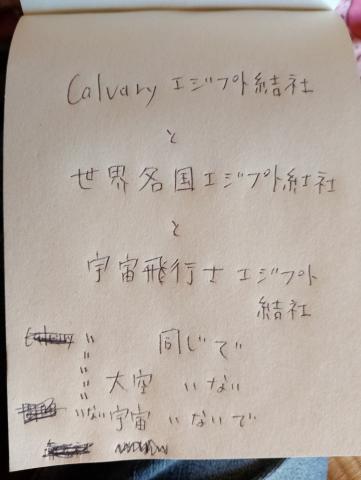 Calvary エジプト結社
と
世界各国エジプト結社
と
宇宙飛行士エジプト
結社
同じで
大空 いない
いない宇宙 いないで